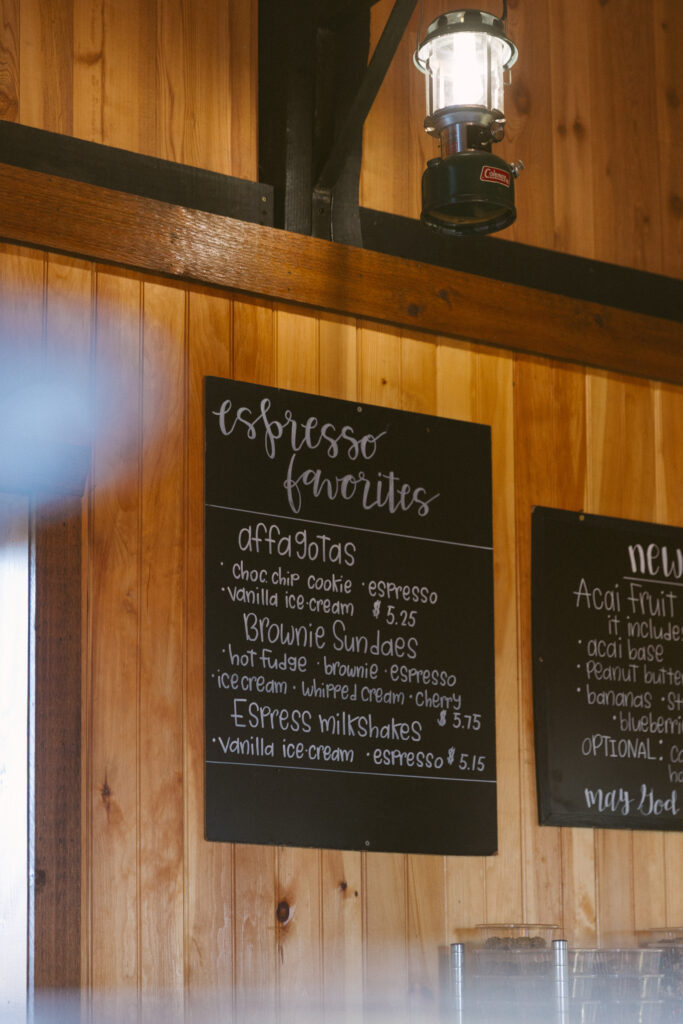 Coleman
espresso
favorites
affagotas
· choc.chip cookie · espresso
· vanilla ice-cream $5.25
Brownie Sundaes
· hot fudge · brownie · espresso
· ice cream · whipped cream · cherry
$5.75
Espress milkshakes
· vanilla ice-cream · espresso $5.15
new
Acai Fruit
it includes
· acai base
· Peanut butte
· bananas · st
· blueberri
OPTIONAL: co
ho
may God